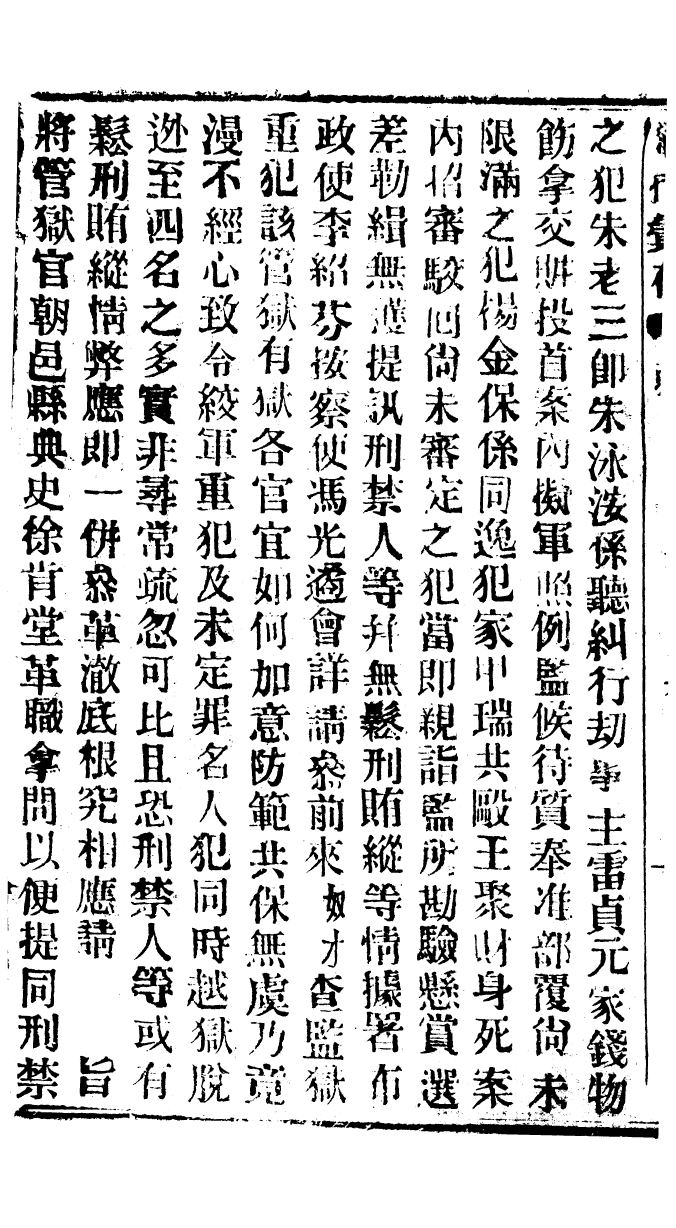 之犯朱老三即朱泳汝係聽糾行刼事主雷貞元家錢物
飭拿交畊投首案內擬軍照例監候待質奉准部覆尙未
限滿之犯楊金保係同逸犯家甲瑞共毆王聚財身死案
內招審駁囘尙未審定之犯當即親詣監所勘驗懸賞選
差勒緝無獲提訊刑禁人等幷無鬆刑賄縱等情據署布
政使李紹芬按察使馮光遹會詳請叅前來奴才查監獄
重犯該管獄有獄各官宜如何加意防範共保無虞乃竟
漫不經心致令絞軍重犯及未定罪名人犯同時越獄脫
迯至四名之多實非尋常疏忽可比且恐刑禁人等或有
鬆刑賄縱情弊應即一併叅革澈底根究相應請旨
將管獄官朝邑縣典史徐肯堂革職拿問以便提同刑禁